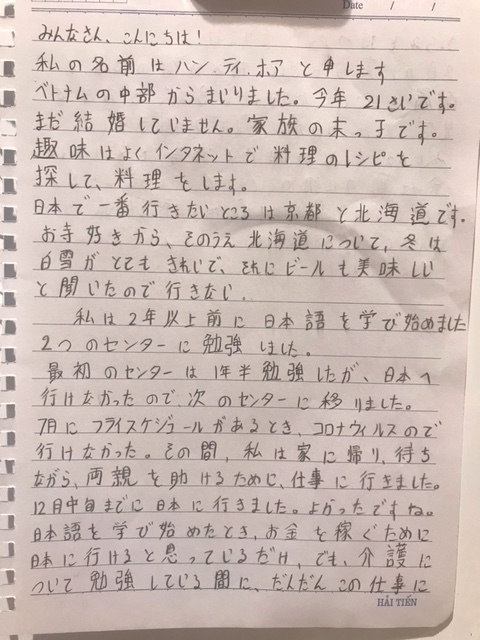 Date / /
みんなさん、こんにちは!
私の名前はハン.ティ.ホアと申します
ベトナムの中部からまじりました。今年21さいです。
まだ結婚していません。家族の末っ子です。
趣味はよくインタネットで料理のレシピを
探して、料理をします。
日本で一番行きたいところは京都と北海道です。
お寺好きから、そのうえ北海道について、冬は
白雪がとてもきれいで、それにビールも美味しい
と聞いたので行きなし.
私は2年以上前に日本語を学び始めました
2つのセンターに勉強しました。
最初のセンターは1年半勉強したが、日本へ
行けなかったので次のセンターに移りました。
7月にフライスケジュールがあるとき、コロナウィルスので
行けなかった。その間、私は家に帰り、待ち
ながら、両親を助けるために、仕事に行きました。
12月中旬までに日本に行きました。よかったですね。
日本語を学び始めたとき、お金を稼ぐために
日本に行けると思っているだけ、でも、介護に
ついて勉強している間に、だんだんこの仕事に
HẢI TIẾN